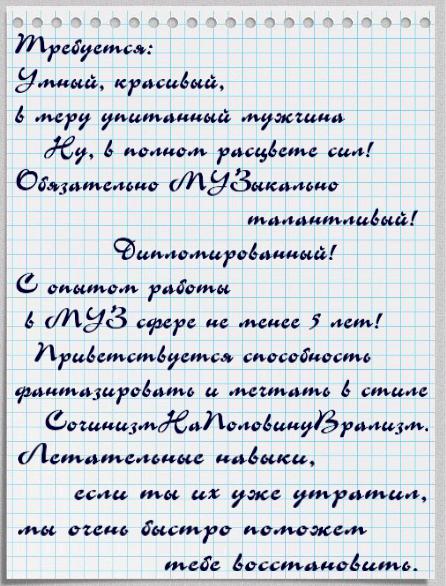 Требуется:
Умный, красивый,
в меру упитанный мужчина
Ну, в полном расцвете сил!
Обязательно МУЗыкально
талантливый!
Дипломированный!
С опытом работы
в МУЗ сфере не менее 5 лет!
Приветствуется способность
фантазировать и мечтать в стиле
СочинизмНаПоловинуВрализм.
Летательные навыки,
если ты их уже утратил,
мы очень быстро поможем
тебе восстановить.